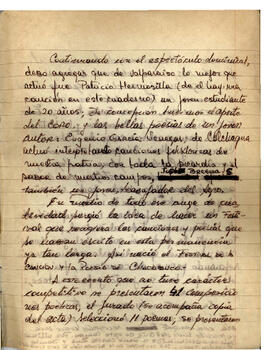 Continuando con el espectáculo dominical,
deseo agregar que de Valparaíso lo mejor que
actuó fue Patricio Hermosilla (de él hay una
canción en este cuaderno) un joven estudiante
de 20 años. De Concepción tuvimos el aporte
del Coro. y las bellas poesías de un joven
autor: Eugenio García Venegas, de Colchagua
actuó interpretando canciones folklóricas de
nuestra patria, con toda la picardía y el
sabor de nuestros campos,
también un joven trabajador del Agro.
En medio de todo ese auge de esa
actividad surgió la idea de hacer un Festi-
val que recogiera las canciones y poesías que
se habían escrito en esta permanencia
ya tan larga. Así nació el Festival de la
Canción y la Poesía de Chacabuco.
Este evento que no tuvo carácter
competitivo se presentaron 41 composicio-
nes poéticas, el jurado (se acompaña copia
del acta) seleccionó 11 poemas; se presentaron